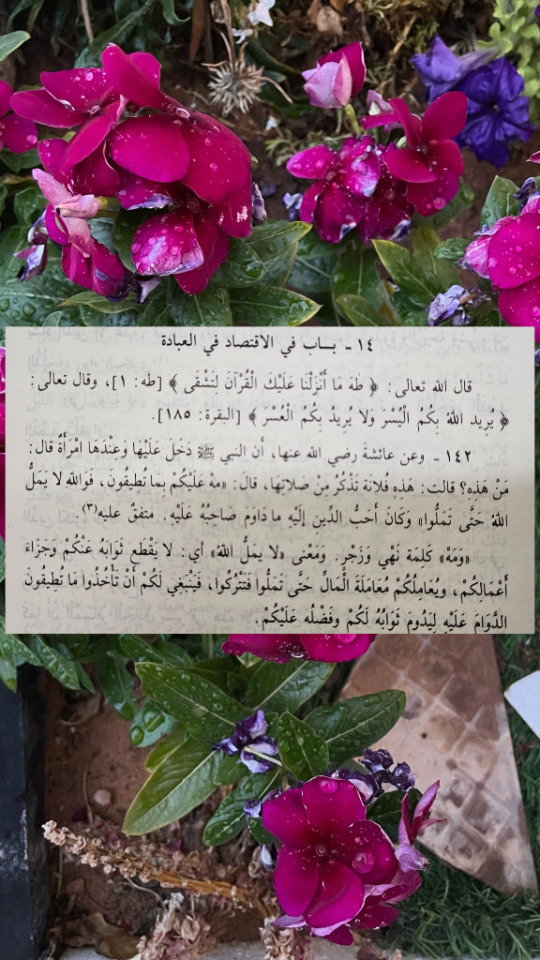 ١٤ - بــاب في الاقتصاد في العبادة
قال الله تعالى: ﴿ طهَ مَا أَنْزَلْنَا عَلَيْكَ الْقُرْآنَ لتَشْقَى ﴾ [طه: ١]، وقال تعالى:
﴿ يُرِيد اللهُ بِكُمُ الْيُسْرَ وَلا يُرِيدُ بِكُمُ الْعُسْرَ ﴾ [البقرة: ١٨٥].
١٤٢ - وعن عائشةَ رضي الله عنها، أن النبي ﷺ دَخَلَ عَلَيْهَا وعنْدَهَا امْرَأَةٌ قال:
مَنْ هَذِهِ؟ قالت: هَذِهِ فُلانَة تَذْكُرُ مِنْ صَلاتِهَا، قال: «مهْ عَلَيْكُمْ بِما تُطيقُون، فَوَاللهِ لا يَمَلُّ
اللهُ حَتَّى تَمَلُّوا» وَكَانَ أَحَبُّ الدِّينِ إلَيْهِ ما دَاوَمَ صَاحِبُهُ عَلَيْهِ. متفقٌ عليه(٣).
«وَمَهْ» كَلِمَة نَهْي وَزَجْرٍ. وَمَعْنى «لا يمَلُّ اللهُ» أي: لا يَقْطَع ثَوَابَهُ عَنْكُمْ وَجَزَاءَ
أَعْمَالِكُمْ، ويُعَامِلُكُمْ مُعَامَلَةَ الْمَالِّ حَتَّى تَمَلُّوا فَتَتْرُكُوا، فَيَنْبَغِي لَكُمْ أَنْ تَأْخُذُوا مَا تُطِيقُونَ
الدَّوَامَ عَلَيْهِ لِيَدُومَ ثَوَابُهُ لَكُمْ وَفَضْلُه عَلَيْكُمْ.